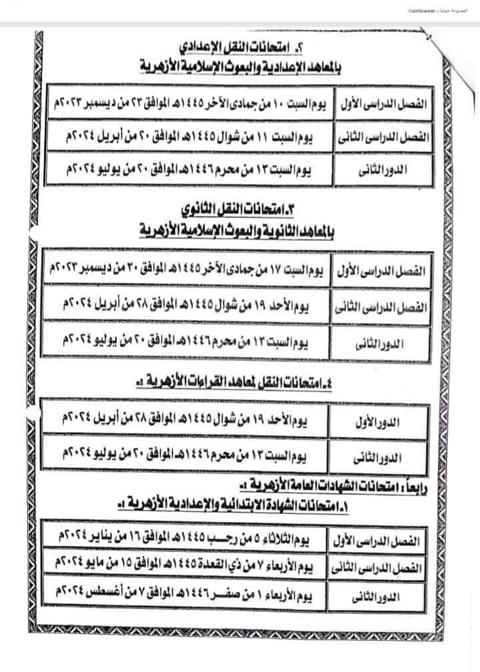 الممسوحة ضوئيا بـ CamScanner
٢ـ امتحانات النقل الإعدادي
بالمعاهد الإعدادية والبعوث الإسلامية الأزهرية
الفصل الدراسى الأول يوم السبت ١٠ من جمادى الآخر ١٤٤٥هـ الموافق ٢٣ من ديسمبر ٢٠٢٣م
الفصل الدراسى الثانى يوم السبت ١١ من شوال ١٤٤٥هـ الموافق ٢٠ من أبريل ٢٠٢٤م
الدور الثانى يوم السبت ١٣ من محرم ١٤٤٦هـ الموافق ٢٠ من يوليو ٢٠٢٤م
٣ـ امتحانات النقل الثانوي
بالمعاهد الثانوية والبعوث الإسلامية الأزهرية
الفصل الدراسى الأول يوم السبت ١٧ من جمادى الآخر ١٤٤٥هـ الموافق ٣٠ من ديسمبر ٢٠٢٣م
الفصل الدراسى الثانى يوم الأحد ١٩ من شوال ١٤٤٥هـ الموافق ٢٨ من أبريل ٢٠٢٤م
الدور الثانى يوم السبت ١٣ من محرم ١٤٤٦هـ الموافق ٢٠ من يوليو ٢٠٢٤م
٤ـ امتحانات النقل لمعاهد القراءات الأزهرية :ـ
الدور الأول يوم الأحد ١٩ من شوال ١٤٤٥هـ الموافق ٢٨ من أبريل ٢٠٢٤م
الدور الثانى يوم السبت ١٣ من محرم ١٤٤٦هـ الموافق ٢٠ من يوليو ٢٠٢٤م
رابعاً : امتحانات الشهادات العامة الأزهرية :ـ
١ـ امتحانات الشهادة الابتدائية والإعدادية الأزهرية :ـ
الفصل الدراسى الأول يوم الثلاثاء ٥ من رجـب ١٤٤٥هـ الموافق ١٦ من يناير ٢٠٢٤م
الفصل الدراسى الثانى يوم الأربعاء ٧ من ذي القعدة ١٤٤٥هـ الموافق ١٥ من مايو ٢٠٢٤م
الدور الثانى يوم الأربعاء ١ من صفـر ١٤٤٦هـ الموافق ٧ من أغسطس ٢٠٢٤م